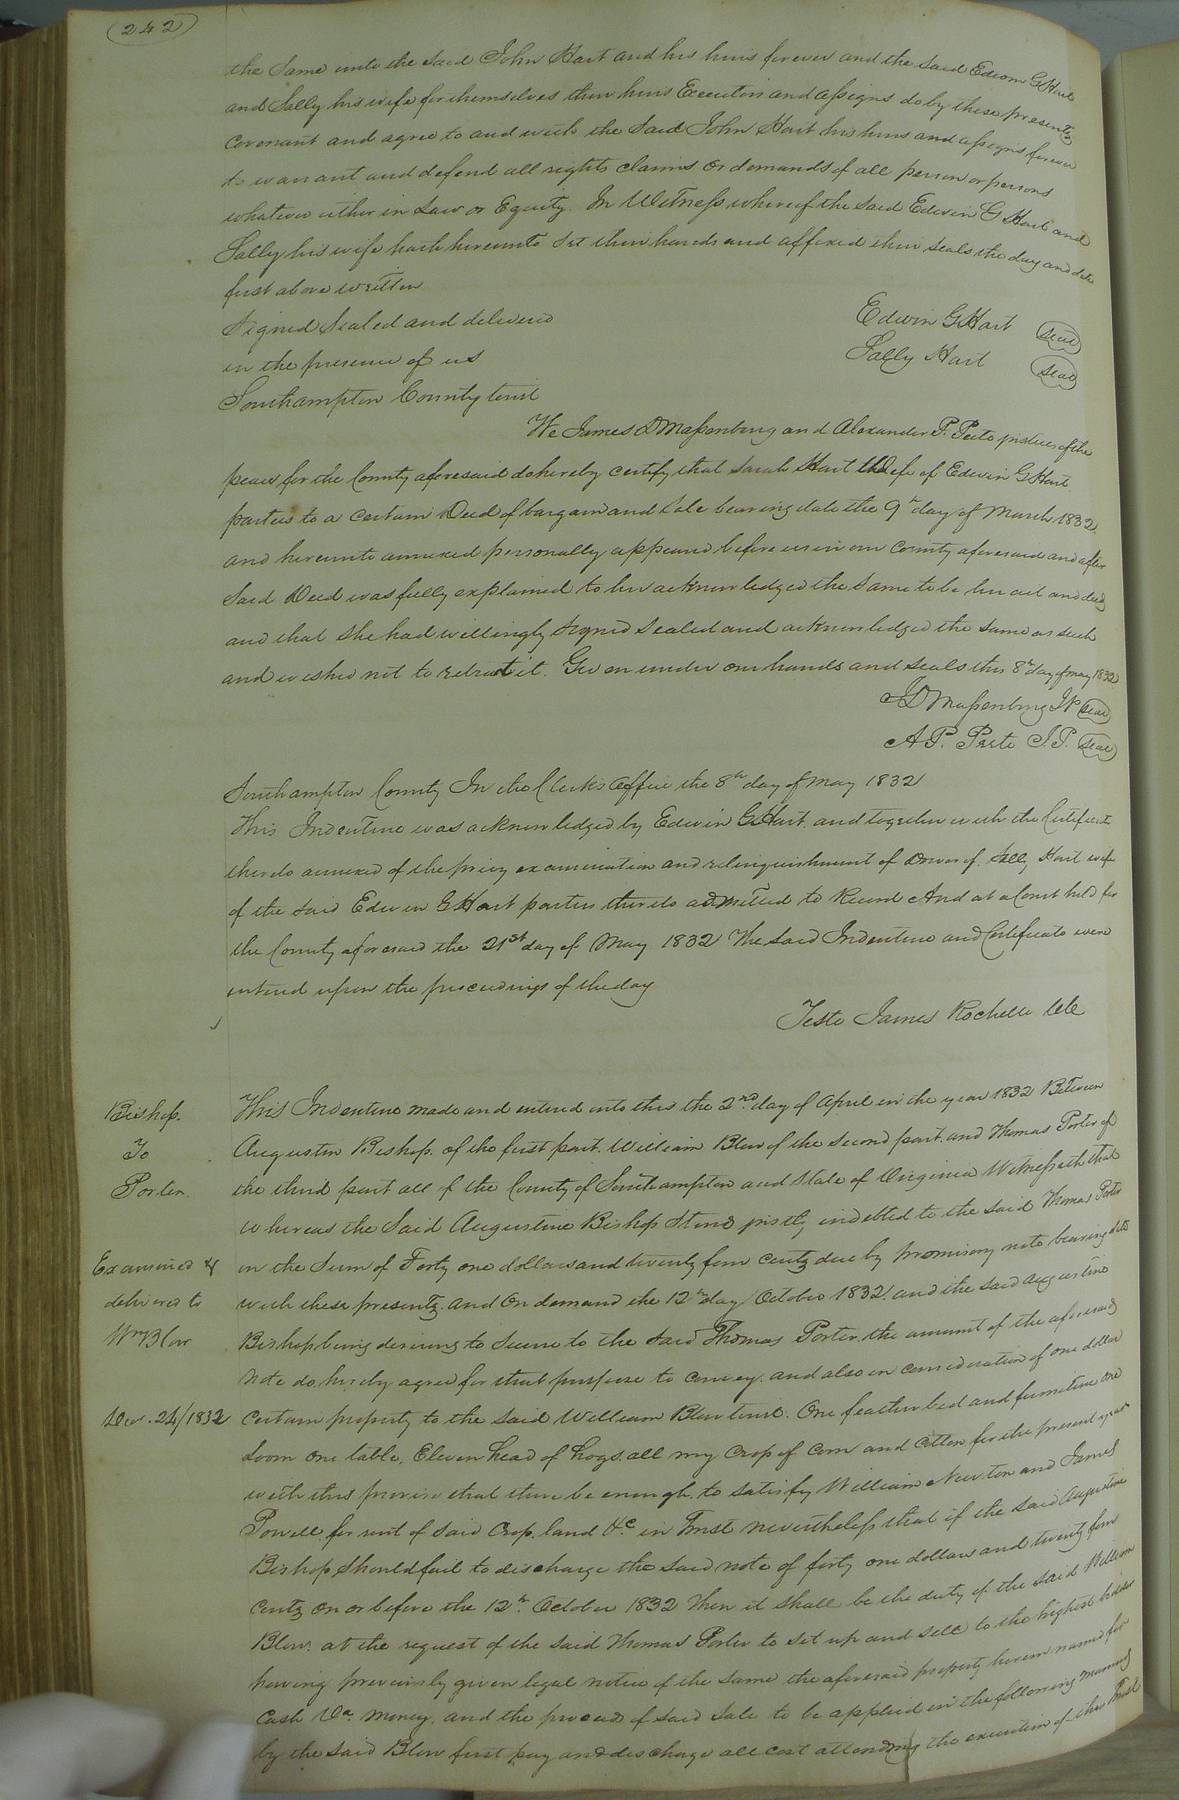 242
the same unto the said John Hart and his heirs forever and the said Edwin G Hart
and Sally his wife for themselves their heirs Executors and assigns do by these presents
covenant and agree to and with the said John Hart his heirs and assigns forever
to warrant and defend all rights claims or demands of all person or persons
whatever either in Law or Equity. In Witness whereof the said Edwin G Hart and
Sally his wife hath hereunto set their hands and affixed their seals the day and date
first above written
Signed Sealed and delivered
Edwin G Hart seal
in the presence of us
Sally Hart seal
Southampton County towit
We James D Massenburg and Alexander P. Peete justices of the
peace for the County aforesaid do hereby certify that Sarah Hart Wife of Edwin G Hart
parties to a certain Deed of bargain and Sale bearing date the 9th day of March 1832
and hereunto annexed personally appeared before us in our County aforesaid and after
said Deed was fully explained to her acknowledged the same to be her act and deed
and that she had willingly signed sealed and acknowledged the same as such
and wished not to retract it. Given under our hands and seals this 8th day of may 1832
JD Massenburg JP seal
A.P. Peete J.P. seal
Southampton County In the Clerks Office the 8th day of May 1832
This Indenture was acknowledged by Edwin G Hart and together with the Certificate
thereto annexed of the privy examination and relinquishment of Dower of Sally Hart wife
of the said Edwin G Hart parties thereto admitted to Record And at a Court held for
the County aforesaid the 21st day of May 1832 The said Indenture and Certificate were
entered upon the proceedings of the day
Teste James Rochelle Clk
Bishop.
To
Porter.
Examined &
delivered to
Wm Blow
Dec. 24/1832
This Indenture made and entered into this the 2nd day of April in the year 1832 Between
Augustin Bishop. of the first part. William Blow of the second part. and Thomas Porter of
the third part all of the County of Southampton and State of Virginia Witnesseth that
whereas the Said Augustine Bishop Stand justly indebted to the said Thomas Porter
in the Sum of Forty one dollars and twenty four cents due by promisory note bearing date
with these presents. and On demand the 12th day October 1832. and the said Augustine
Bishop being desiring to Secure to the said Thomas Porter the amount of the aforesaid
note do hereby agree for that purpose to convey. and also in consideration of one dollar
certain property to the said William Blow towit. One feather bed and furniture one
loom one table, Eleven head of hogs. all my Crop of Corn and Cotton for the present year
with this proviso that there be enough to satisfy William Newton and James
Powell for rent of said Crop, land &c in Trust nevertheless that if the said Augustine
Bishop Should fail to discharge the said note of forty one dollars and twenty four
cents on or before the 12th October 1832 Then it shall be the duty of the said William
Blow. at the request of the said Thomas Porter to set up and sell to the highest bidder
having previously given legal notice of the same the aforesaid property herein named for
Cash Va. money. and the proceeds of said Sale to be applied in the following manner
by the said Blow first pay and discharge all cost attending the execution of this trust